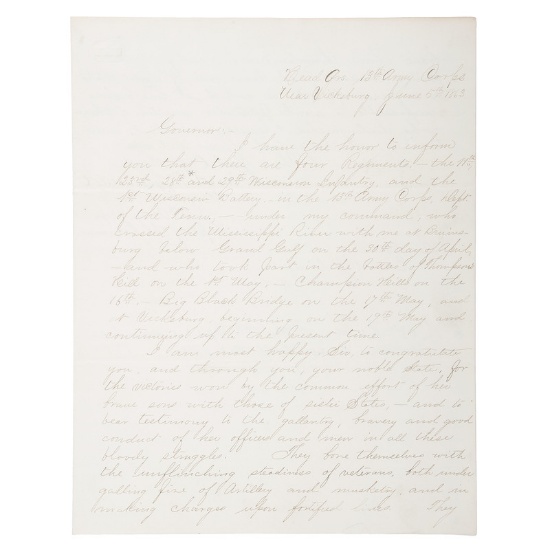 Head Qrs 13th Army Corps
Near Vicksburg, June 5th 1863
Governor,
I have the honor to inform
you that there are four Regiments – the 11th,
23rd, 28th and 29th Wisconsin Infantry, and the
1st Wisconsin Battery – in the 13th Army Corps, Dept.
of the Tenn. – under my command, who
crossed the Mississippi River with me at
below Grand Gulf on the 30th day of April,
and who took part in the battles of Thompsons
Hill on the 1st May, – Champion Hills on the
16th – Big Black Bridge on the 17th May, and
at Vicksburg beginning on the 19th May and
continuing up to the present time.
I am most happy, Sir, to congratulate
you, and through you, your noble State, for
the victories won by the common effort of her
brave sons with those of sister States, – and to
bear testimony to the gallantry, bravery and good
conduct of her officers and men in all these
bloody struggles. They bore themselves with
the unflinching steadiness of veterans, both under
galling fire of Artillery and musketry, and in
making charges upon fortified lines. They